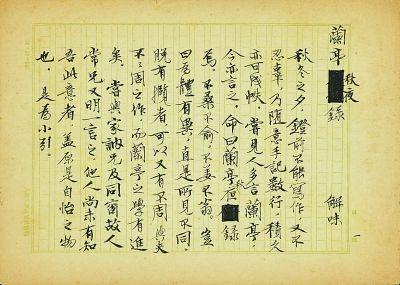 蘭亭秋夜錄
解味
一
秋冬之夕,鐙前不能寫作,又不
忍辜,乃隨意手記數行,積久
亦可成帙。嘗見人多言蘭亭,
今亦言之,命曰蘭亭秋夜錄
焉。不桑不俞,不姜不翁。豈
曰為體有異,直是所見不同。
脫有懶者,可以又有不同
不周之作,而蘭亭之學有進
矣。嘗與家訥兄及同窗故人
常兄又明一言之,他人尚未有知
吾此意者,蓋原是自怡之物
也,是為小引。